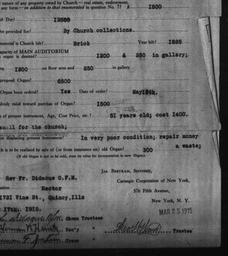 nature of any property owned by Church—real estate, endowment,
any form— in addition to that enumerated in question No. 7? $ 1500
12500
provided for? By Church collections.
material is Church built? Brick Year built? 1885
capacity of MAIN AUDITORIUM
1200 & 250 in gallery;
1200 on floor area and 250 in gallery
proposed Organ? 6500
Organ been ordered? Yes Date of order?
already raised toward purchase of Organ? 1500
of present instrument, Age, Cost Price, etc.? 31 years old; cost 1400.
small for the church;
In very poor condition; repair money
a waste;
is to be realized by sale of (or from insurance on) old Organ? 300
(If old Organ is not to be sold, state its value for incorporation in new Organ)
Rev Fr. Didacus O.F.M.
Rector
1721 Vine St., Quincy, Ills
17th. 1915.
Jas Bertram, Secretary,
Carnegie Corporation of New York,
576 Fifth Avenue,
New York, N. Y.
MAR 25 1915
Church Trustees
Sec'y
Trustees